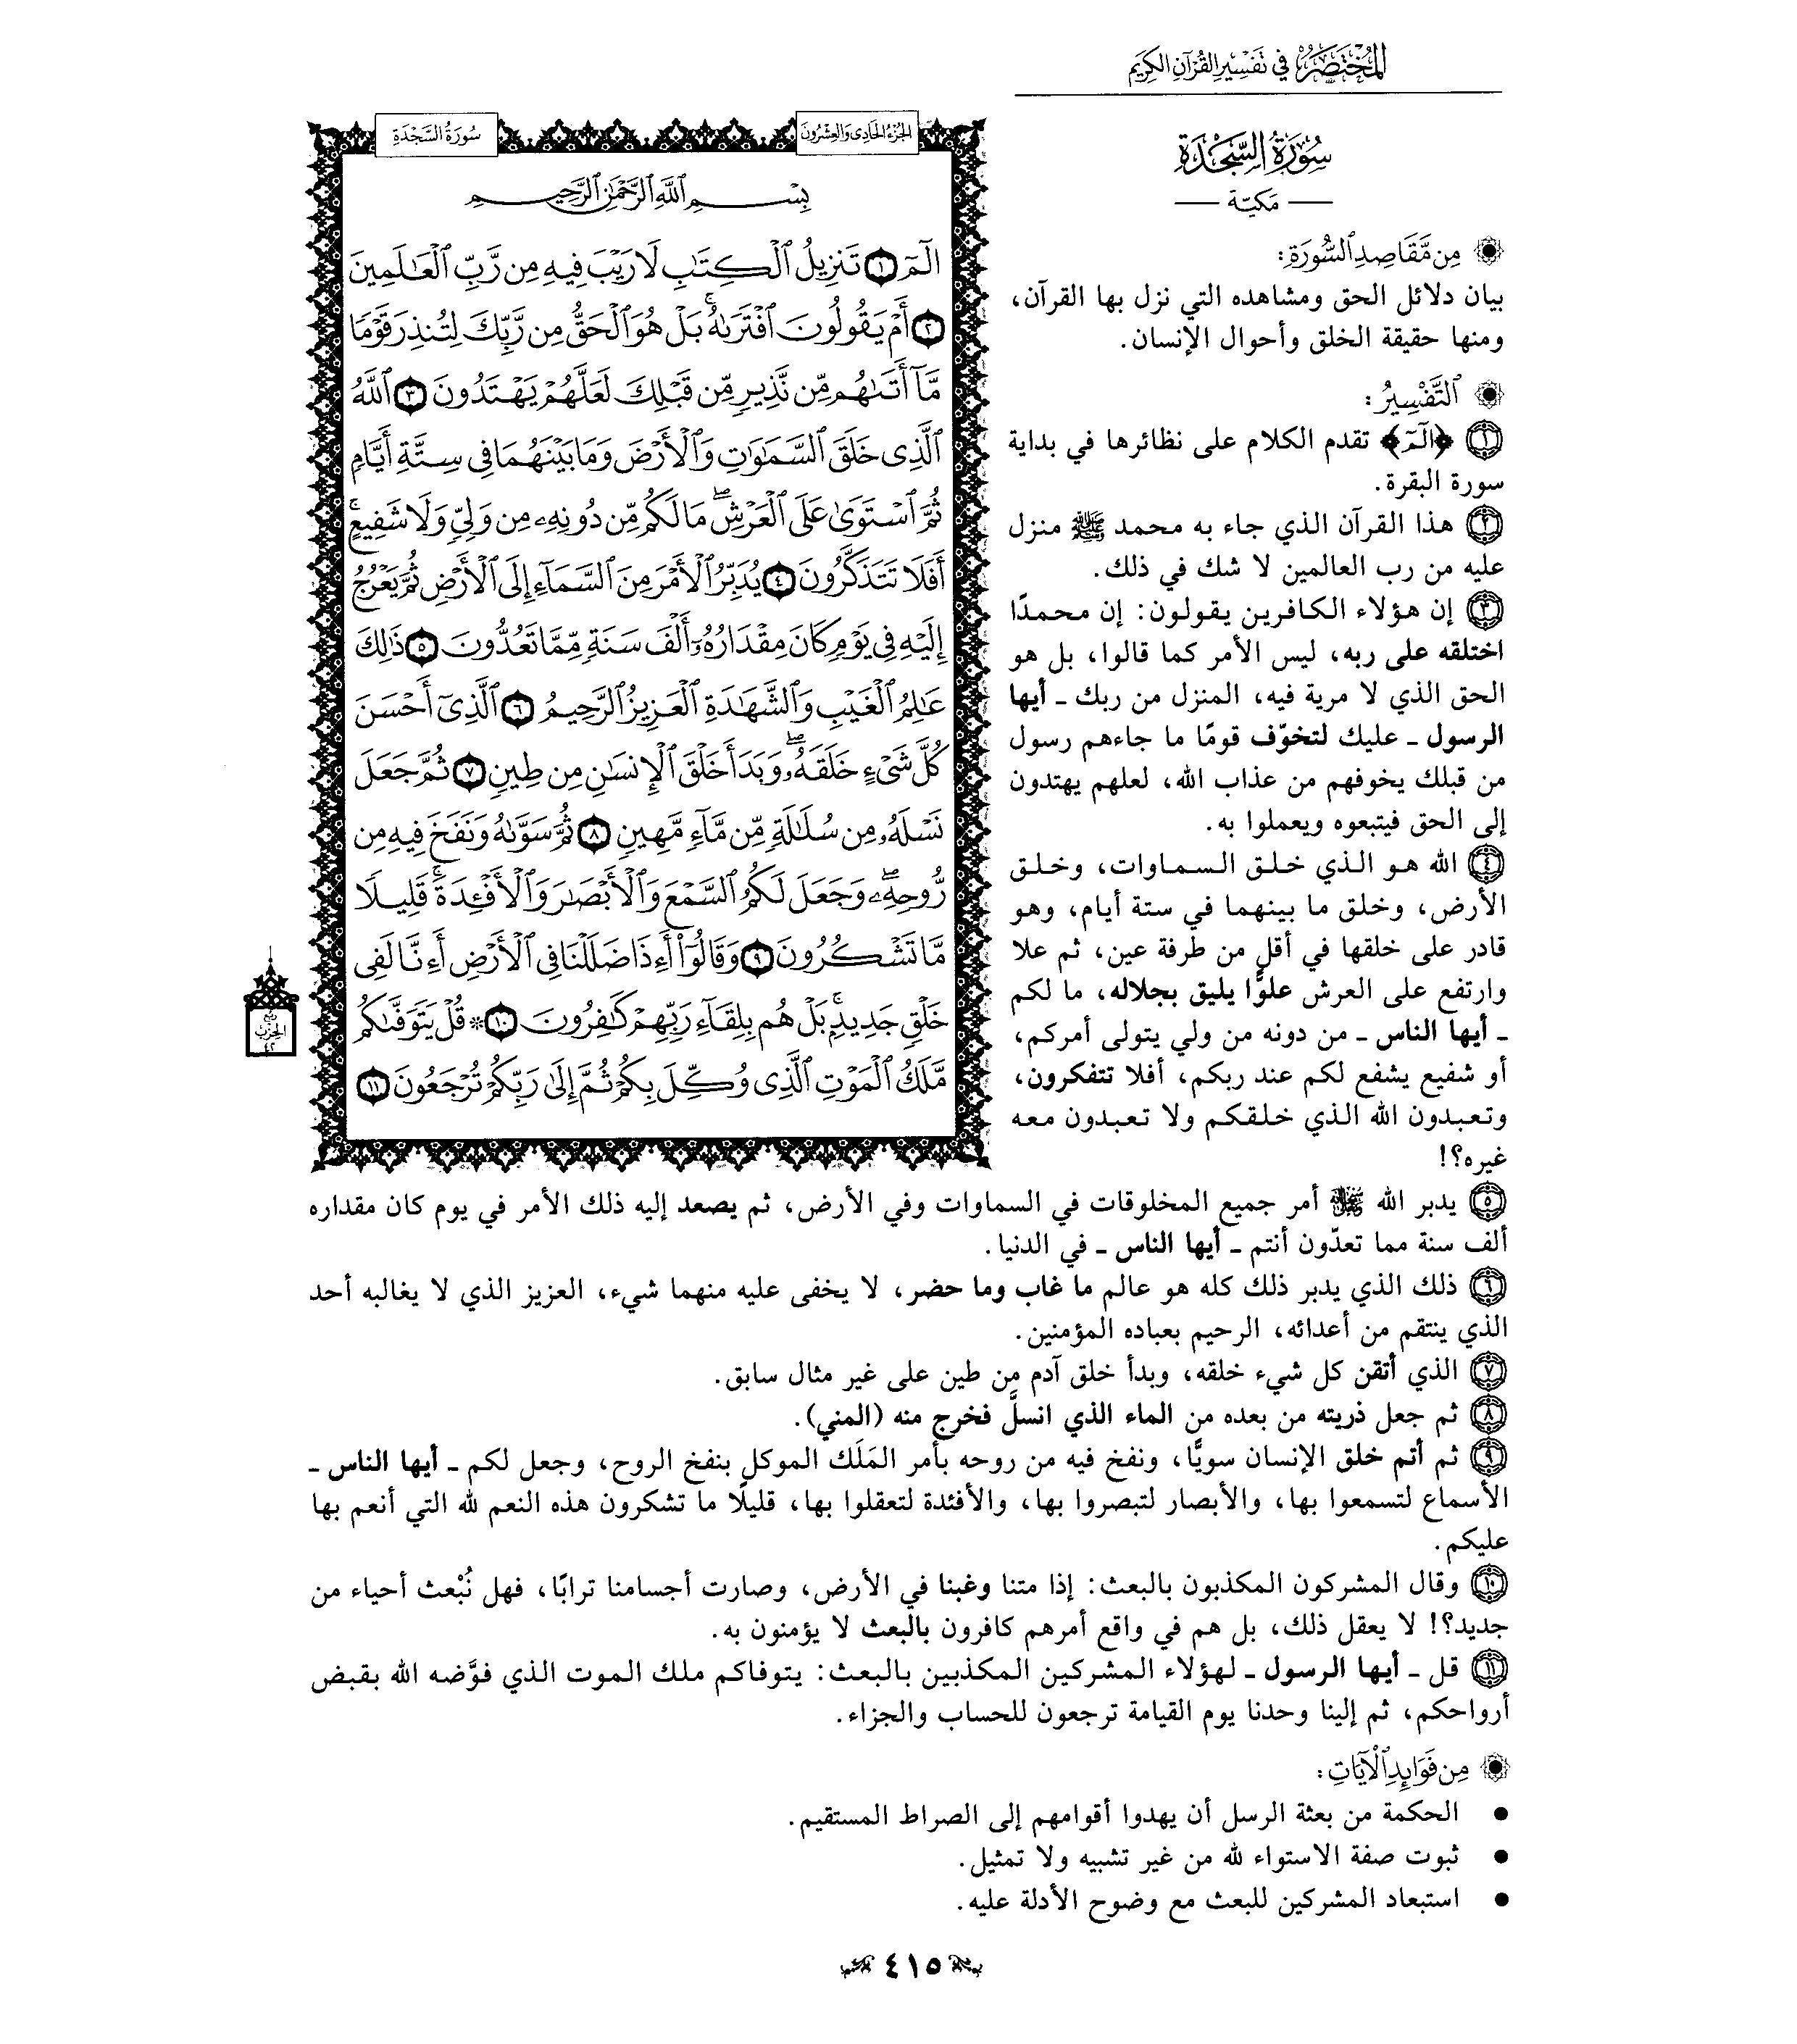 المُخْتَصَرُ فِي تَفْسِيرِ القُرْآنِ الكَرِيمِ
سُورَةُ السَّجْدَةِ
— مَكيّة —
مِن مَّقَاصِدِ ٱلسُّورَةِ:
بيان دلائل الحق ومشاهده التي نزل بها القرآن،
ومنها حقيقة الخلق وأحوال الإنسان.
ٱلتَّفْسِيرُ:
١ ﴿الٓمٓ﴾ تقدم الكلام على نظائرها في بداية
سورة البقرة.
٢ هذا القرآن الذي جاء به محمد ﷺ منزل
عليه من رب العالمين لا شك في ذلك.
٣ إن هؤلاء الكافرين يقولون: إن محمدًا
اختلقه على ربه، ليس الأمر كما قالوا، بل هو
الحق الذي لا مرية فيه، المنزل من ربك ـ أيها
الرسول ـ عليك لتخوّف قومًا ما جاءهم رسول
من قبلك يخوفهم من عذاب الله، لعلهم يهتدون
إلى الحق فيتبعوه ويعملوا به.
٤ الله هو الذي خلق السماوات، وخلق
الأرض، وخلق ما بينهما في ستة أيام، وهو
قادر على خلقها في أقل من طرفة عين، ثم علا
وارتفع على العرش علوًّا يليق بجلاله، ما لكم
ـ أيها الناس ـ من دونه من ولي يتولى أمركم،
أو شفيع يشفع لكم عند ربكم، أفلا تتفكرون،
وتعبدون الله الذي خلقكم ولا تعبدون معه
غيره؟!
الجُزْءُ الحَادِى وَالعِشْرُونَ
سُورَةُ السَّجْدَةِ
بِسْمِ ٱللَّهِ ٱلرَّحْمَٰنِ ٱلرَّحِيمِ
الٓمٓ ١ تَنزِيلُ ٱلْكِتَٰبِ لَا رَيْبَ فِيهِ مِن رَّبِّ ٱلْعَٰلَمِينَ
٢ أَمْ يَقُولُونَ ٱفْتَرَىٰهُۚ بَلْ هُوَ ٱلْحَقُّ مِن رَّبِّكَ لِتُنذِرَ قَوْمًا
مَّآ أَتَىٰهُم مِّن نَّذِيرٍ مِّن قَبْلِكَ لَعَلَّهُمْ يَهْتَدُونَ ٣ ٱللَّهُ
ٱلَّذِى خَلَقَ ٱلسَّمَٰوَٰتِ وَٱلْأَرْضَ وَمَا بَيْنَهُمَا فِى سِتَّةِ أَيَّامٍ
ثُمَّ ٱسْتَوَىٰ عَلَى ٱلْعَرْشِۖ مَا لَكُم مِّن دُونِهِۦ مِن وَلِىٍّ وَلَا شَفِيعٍۚ
أَفَلَا تَتَذَكَّرُونَ ٤ يُدَبِّرُ ٱلْأَمْرَ مِنَ ٱلسَّمَآءِ إِلَى ٱلْأَرْضِ ثُمَّ يَعْرُجُ
إِلَيْهِ فِى يَوْمٍ كَانَ مِقْدَارُهُۥٓ أَلْفَ سَنَةٍ مِّمَّا تَعُدُّونَ ٥ ذَٰلِكَ
عَٰلِمُ ٱلْغَيْبِ وَٱلشَّهَٰدَةِ ٱلْعَزِيزُ ٱلرَّحِيمُ ٦ ٱلَّذِىٓ أَحْسَنَ
كُلَّ شَىْءٍ خَلَقَهُۥۖ وَبَدَأَ خَلْقَ ٱلْإِنسَٰنِ مِن طِينٍ ٧ ثُمَّ جَعَلَ
نَسْلَهُۥ مِن سُلَٰلَةٍ مِّن مَّآءٍ مَّهِينٍ ٨ ثُمَّ سَوَّىٰهُ وَنَفَخَ فِيهِ مِن
رُّوحِهِۦۖ وَجَعَلَ لَكُمُ ٱلسَّمْعَ وَٱلْأَبْصَٰرَ وَٱلْأَفْـِٔدَةَۚ قَلِيلًا
مَّا تَشْكُرُونَ ٩ وَقَالُوٓا۟ أَءِذَا ضَلَلْنَا فِى ٱلْأَرْضِ أَءِنَّا لَفِى
خَلْقٍ جَدِيدٍۭۚ بَلْ هُم بِلِقَآءِ رَبِّهِمْ كَٰفِرُونَ ١٠ * قُلْ يَتَوَفَّىٰكُم
مَّلَكُ ٱلْمَوْتِ ٱلَّذِى وُكِّلَ بِكُمْ ثُمَّ إِلَىٰ رَبِّكُمْ تُرْجَعُونَ ١١
ربع
الحزب
٤٢
٥ يدبر الله ﷻ أمر جميع المخلوقات في السماوات وفي الأرض، ثم يصعد إليه ذلك الأمر في يوم كان مقداره
ألف سنة مما تعدّون أنتم ـ أيها الناس ـ في الدنيا.
٦ ذلك الذي يدبر ذلك كله هو عالم ما غاب وما حضر، لا يخفى عليه منهما شيء، العزيز الذي لا يغالبه أحد
الذي ينتقم من أعدائه، الرحيم بعباده المؤمنين.
٧ الذي أتقن كل شيء خلقه، وبدأ خلق آدم من طين على غير مثال سابق.
٨ ثم جعل ذريته من بعده من الماء الذي انسلَّ فخرج منه (المني).
٩ ثم أتم خلق الإنسان سويًّا، ونفخ فيه من روحه بأمر المَلَك الموكل بنفخ الروح، وجعل لكم ـ أيها الناس ـ
الأسماع لتسمعوا بها، والأبصار لتبصروا بها، والأفئدة لتعقلوا بها، قليلًا ما تشكرون هذه النعم لله التي أنعم بها
عليكم.
١٠ وقال المشركون المكذبون بالبعث: إذا متنا وغبنا في الأرض، وصارت أجسامنا ترابًا، فهل نُبْعث أحياء من
جديد؟! لا يعقل ذلك، بل هم في واقع أمرهم كافرون بالبعث لا يؤمنون به.
١١ قل ـ أيها الرسول ـ لهؤلاء المشركين المكذبين بالبعث: يتوفاكم ملك الموت الذي فوَّضه الله بقبض
أرواحكم، ثم إلينا وحدنا يوم القيامة ترجعون للحساب والجزاء.
مِن فَوَايِدِ ٱلْآيَاتِ:
● الحكمة من بعثة الرسل أن يهدوا أقوامهم إلى الصراط المستقيم.
● ثبوت صفة الاستواء لله من غير تشبيه ولا تمثيل.
● استبعاد المشركين للبعث مع وضوح الأدلة عليه.
٤١٥